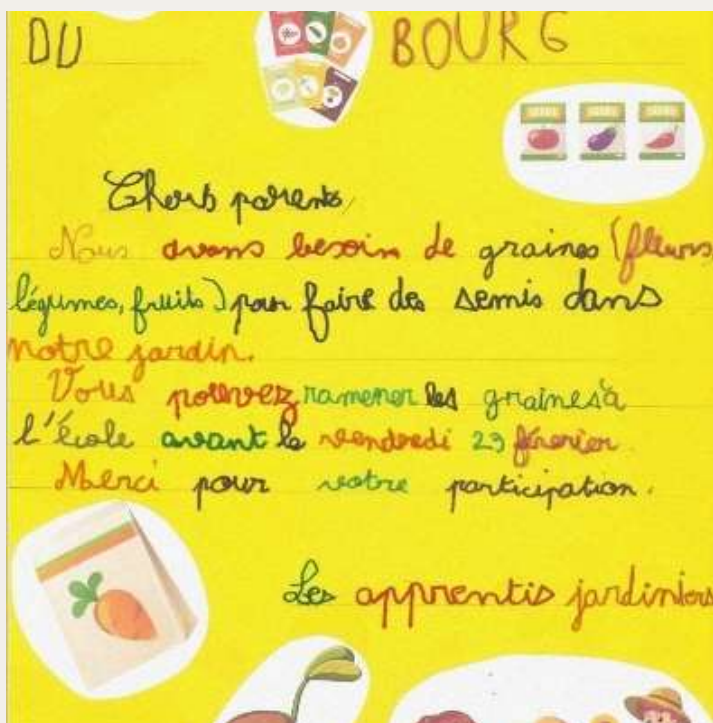 DU BOURG
Chers parents,
Nous avons besoin de graines (fleurs,
légumes, fruits) pour faire des semis dans
notre jardin.
Vous pouvez ramener les graines à
l'école avant le vendredi 23 février.
Merci pour votre participation.
Les apprentis jardiniers